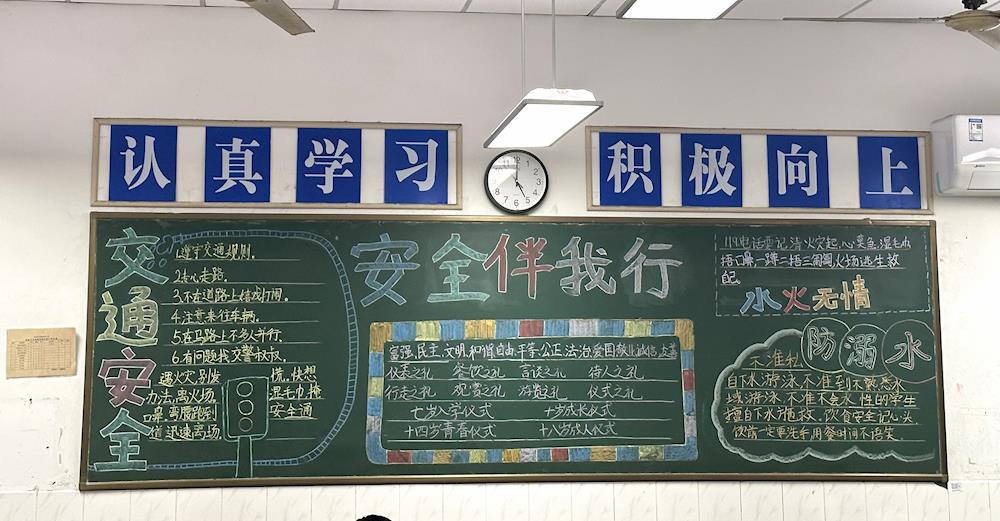 认真学习
积极向上
12
1
2
3
4
5
6
7
8
9
10
11
交通安全
1.遵守交通规则。
2.专心走路。
3.不在道路上嬉戏打闹。
4.注意来往车辆。
5.在马路上不多人并行.
6.有问题找交警叔叔。
遇火灾,别发慌。快想
办法,离火场.湿毛巾,捂
口鼻,弯腰跑到安全通
道迅速离场.
安全伴我行
富强,民主,文明,和谐,自由,平等,公正,法治,爱国,敬业,诚信,友善
仪表之礼 餐饮之礼 言谈之礼 待人之礼
行走之礼 观赏之礼 游览之礼 仪式之礼
七岁入学仪式 十岁成长仪式
十四岁青春仪式 十八岁成人仪式
119电话要记清,火灾起,心莫急,湿毛巾
捂口鼻,一蹲二捂三匍匐,火场逃生救
自己.
水火无情
防溺水
不准私
自下水游泳,不准到不熟悉水
域游泳,不准不会水性的学生
擅自下水施救.饮食安全记心头
饮前一定要洗手,用餐时间不语笑.